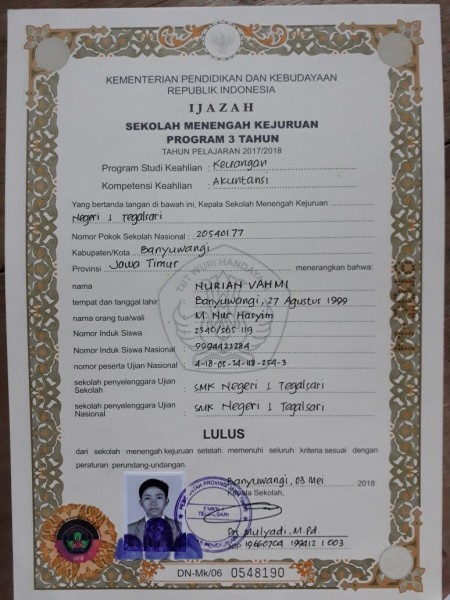 KEMENTERIAN PENDIDIKAN DAN KEBUDAYAAN
REPUBLIK INDONESIA
IJAZAH
SEKOLAH MENENGAH KEJURUAN
PROGRAM 3 TAHUN
TAHUN PELAJARAN 2017/2018
Program Studi Keahlian : Keuangan
Kompetensi Keahlian : Akuntansi
Yang bertanda tangan di bawah ini, Kepala Sekolah Menengah Kejuruan
Negeri 1 Tegalsari
Nomor Pokok Sekolah Nasional : 20540177
Kabupaten/Kota : Banyuwangi
Provinsi : Jawa Timur menerangkan bahwa:
nama : NURIAH VAHMI
tempat dan tanggal lahir : Banyuwangi, 27 Agustus 1999
nama orang tua/wali : M. Nur Hasyim
Nomor Induk Siswa : 2340/565 119
Nomor Induk Siswa Nasional : 9994423284
nomor peserta Ujian Nasional : 4-18-05-24-118-254-3
sekolah penyelenggara Ujian Sekolah : SMK Negeri 1 Tegalsari
sekolah penyelenggara Ujian Nasional : SMK Negeri 1 Tegalsari
LULUS
dari sekolah menengah kejuruan setelah memenuhi seluruh kriteria sesuai dengan
peraturan perundang-undangan.
Banyuwangi, 03 Mei 2018
Kepala Sekolah,
TEGALSARI
Drs Mulyadi, M.Pd
NIP 19660704 199412 1 003
DN-Mk/06 0548190